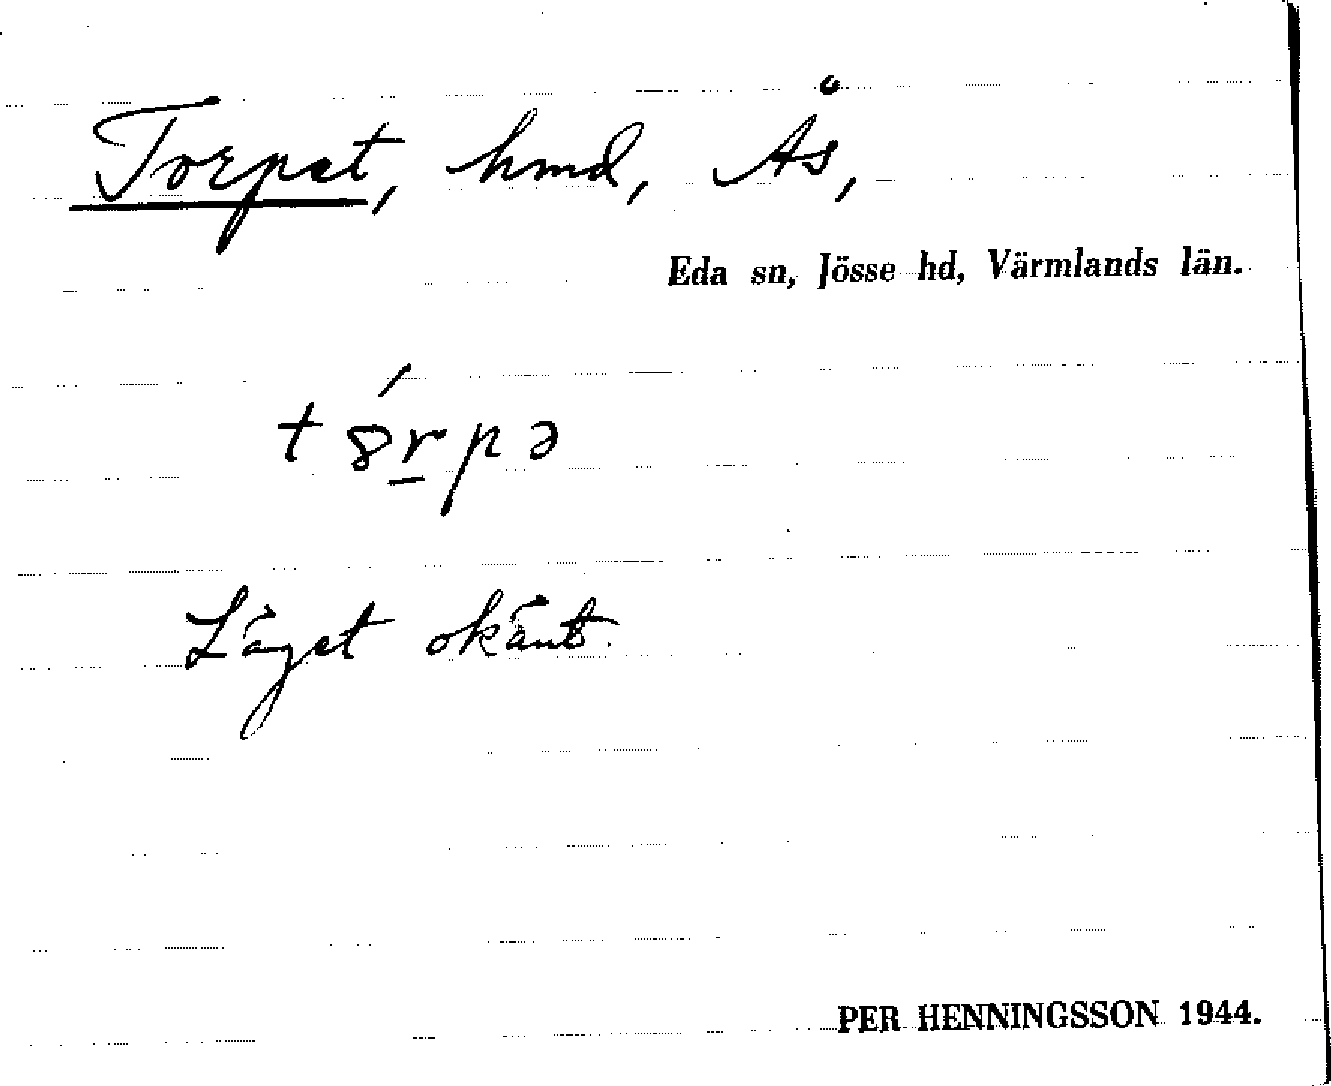 Torpet, hmd, Ås,
Eda sn, Jösse hd, Värmlands län.
t8́r̲pə
Läget okänt.
PER HENNINGSSON 1944.